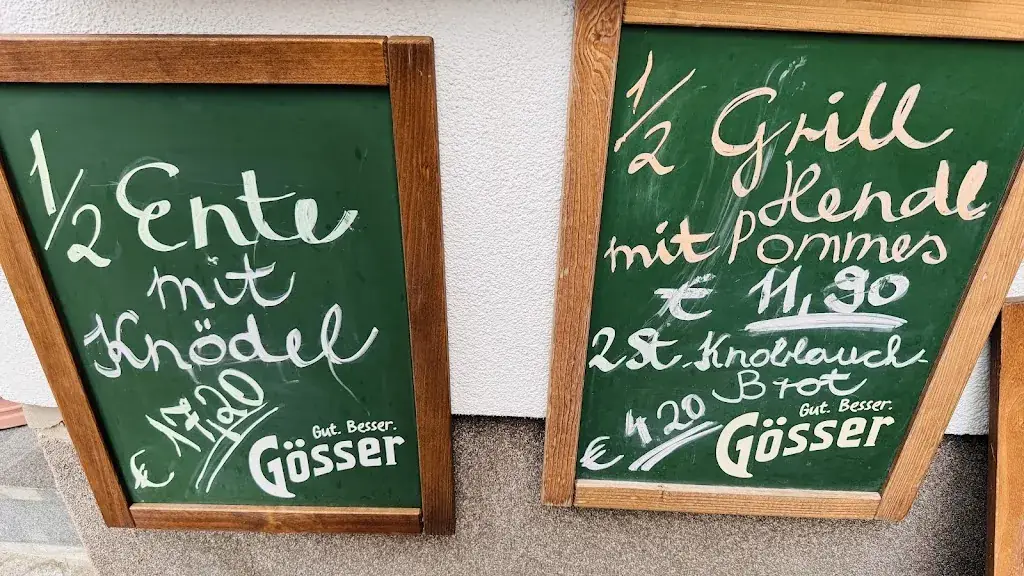 1/2 Ente
mit
Knödel
€ 17,20
Gut. Besser.
Gösser
1/2 Grill
Hendl
mit Pommes
€ 11,90
2 St. Knoblauch
Brot
€ 4,20
Gut. Besser.
Gösser